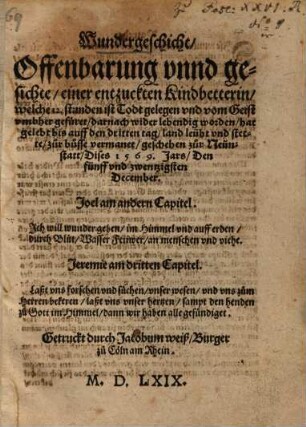 Wundergeschichte/
Offenbarung vnnd ge-
sichte/ einer entzuckten Kindbetterin/
welche 12. stunden ist Todt gelegen vnd vom Geist
vmbher gefüret/ darnach wider lebendig worden/ hat
gelebt bis auff den dritten tag/ land leüht vnd stet-
te/ zür büsse vermanet/ geschehen zür Neün-
statt/ Dises 1569. Jars/ Den
fünff vnd zwenzigsten
December.
Joel am andern Capitel.
Ich will wunder geben/ im Himmel vnd auff erden/
durch Blüt/ Wasser Feüwer/ an menschen vnd viehe.
Jeremie am dritten Capitel.
Laßt vns forschen vnd süchen/ vnser wesen/ vnd vns zum
Herren bekeren/ laßt vns vnser hertzen/ sampt den henden
zü Gott im Himmel/ dann wir haben alle gesündiget.
Getruckt durch Jacobum weiß/ Burger
zü Cöln am Rhein.
M. D. LXIX.